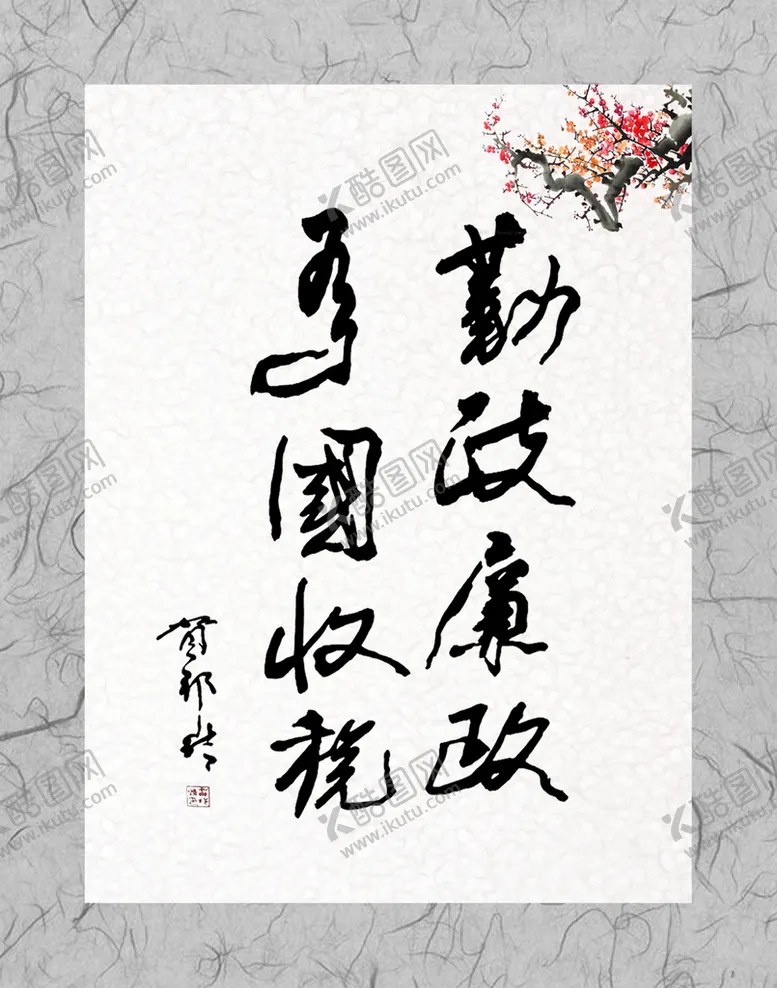 勤政廉政
為國收税
酷图网
www.ikutu.com
酷图网
www.ikutu.com
酷图网
www.ikutu.com
酷图网
www.ikutu.com
酷图网
www.ikutu.com
酷图网
www.ikutu.com
酷图网
www.ikutu.com
酷图网
www.ikutu.com
酷图网
www.ikutu.com